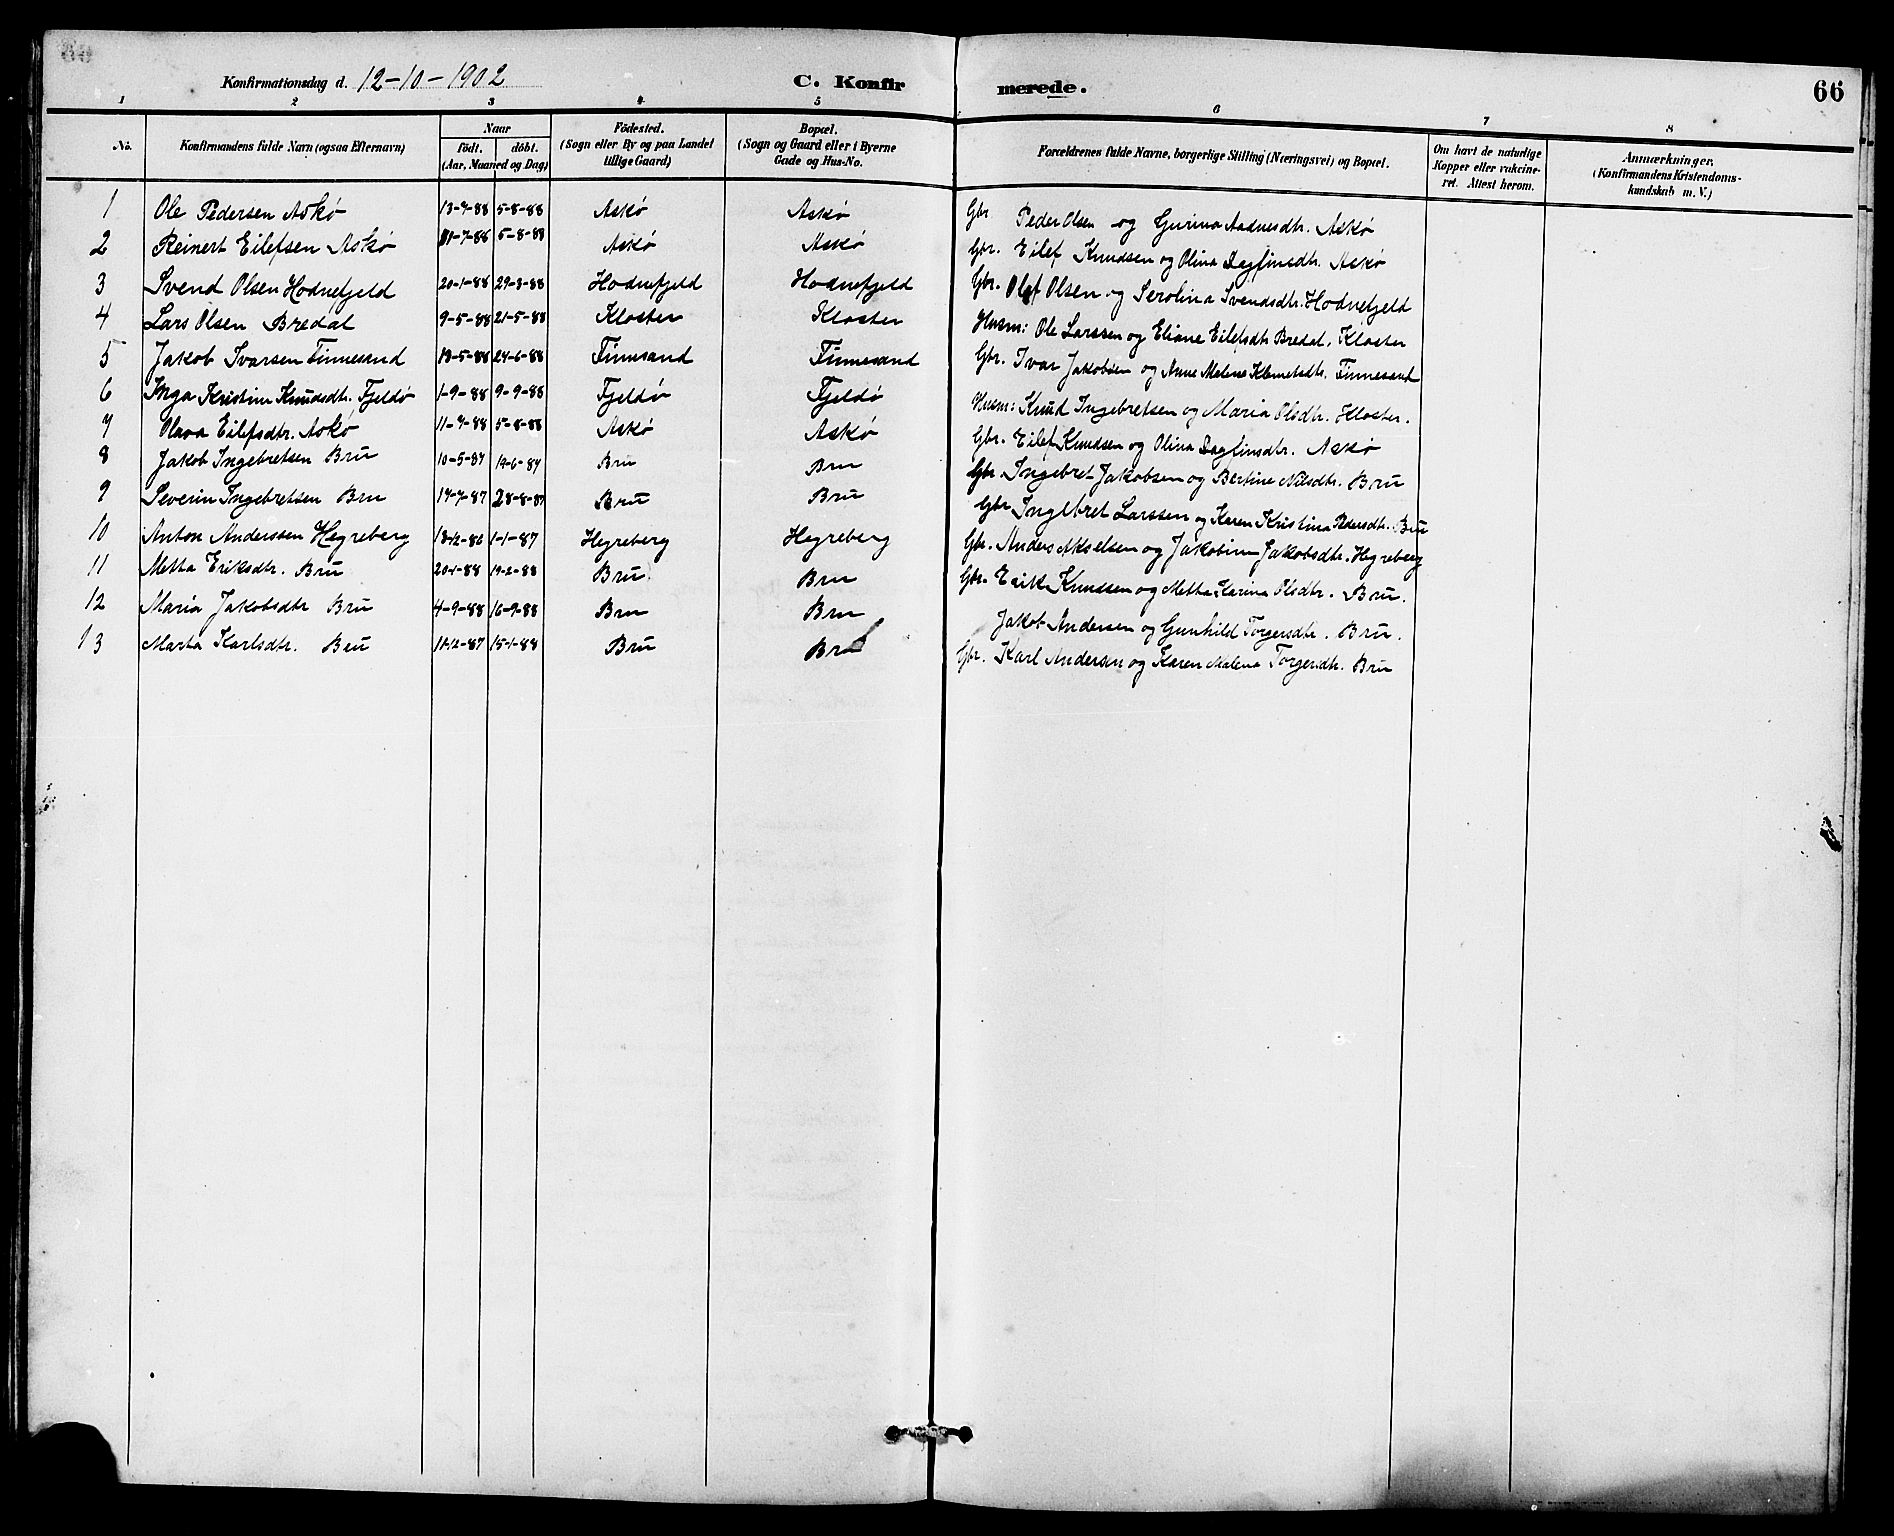 Konfirmationsdag d. 12-10-1902 C. Konfirmerede. 66
1 2 3 4 5 6 7 8
No. Konfirmandens fulde Navn (ogsaa Efternavn) Naar födt. döbt. (Aar, Maaned og Dag) Födested. (Sogn eller By og paa Landet tillige Gaard) Bopæl. (Sogn og Gaard eller i Byerne Gade og Hus-No. Forældrenes fulde Navne, borgerlige Stilling (Næringsvei) og Bopæl. Om havt de naturlige Kopper eller vakcineret. Attest herom. Anmærkninger, (Konfirmandens Kristendomskundskab m. V.)
1 Ole Pedersen Askø 13-7-88 5-8-88 Askø Askø Gbr. Peder Olsen og Gurina Aadnesdtr. Askø
2 Reinert Eilefsen Askø 11-7-88 5-8-88 Askø Askø Gbr. Eilef Knudsen og Olina Dagfinsdtr. Askø
3 Svend Olsen Hodnefjeld 20-1-88 29-3-88 Hodnefjeld Hodnefjeld Gbr. Olaf Olsen og Serolina Svendsdtr. Hodnefjeld
4 Lars Olsen Bredal 9-5-88 21-5-88 Kloster Kloster Husm: Ole Larssen og Eliane Eilefsdtr Bredal. Kloster
5 Jakob Ivarsen Finnesand 19-5-88 24-6-88 Finnesand Finnesand Gbr. Ivar Jakobsen og Anne Malene Klemetsdtr. Finnesand
6 Inga Kristine Knudsdtr. Fjeldø 1-9-88 9-9-88 Fjeldø Fjeldø Husm: Knud Ingebretsen og Maria Olsdtr. Kloster.
7 Olava Eilefsdtr. Askø 11-7-88 5-8-88 Askø Askø Gbr. Eilef Knudsen og Olina Dagfinsdtr. Askø
8 Jakob Ingebretsen Bru 10-5-87 19-6-87 Bru Bru Gbr Ingebret Jakobsen og Bertine Nilsdtr. Bru
9 Severin Ingebretsen Bru 17-7-87 28-8-87 Bru Bru Gbr Ingebret Larssen og Karen Kristina Pedersdtr. Bru
10 Anton Anderssen Hegreberg 13-12-86 1-1-87 Hegreberg Hegreberg Gbr. Anders Akselsen og Jakobine Jakobsdtr. Hegreberg
11 Metha Eriksdtr. Bru 20-1-88 19-2-88 Bru Bru Gbr. Erik Knudsen og Metha Karina Olsdtr. Bru.
12 Maria Jakobsdtr Bru 4-9-88 16-9-88 Bru Bru Jakob Andersen og Gunhild Torgersdtr. Bru.
13 Marta Karlsdtr. Bru 11-12-87 15-1-88 Bru Bru Gbr. Karl Andersen og Karen Malena Torgersdtr. Bru